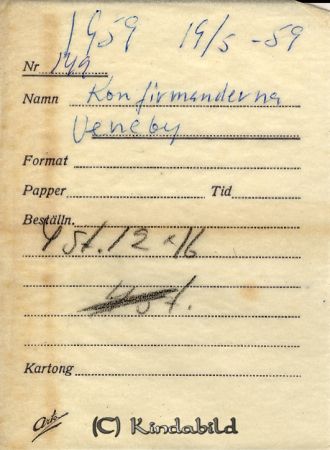 1959 19/5 -59
Nr 149
Namn Konfirmanderna
Veneby
Format
Papper Tid
Beställn.
4 st. 12 x 16
4 st.
Kartong
Ark
(C) Kindabild